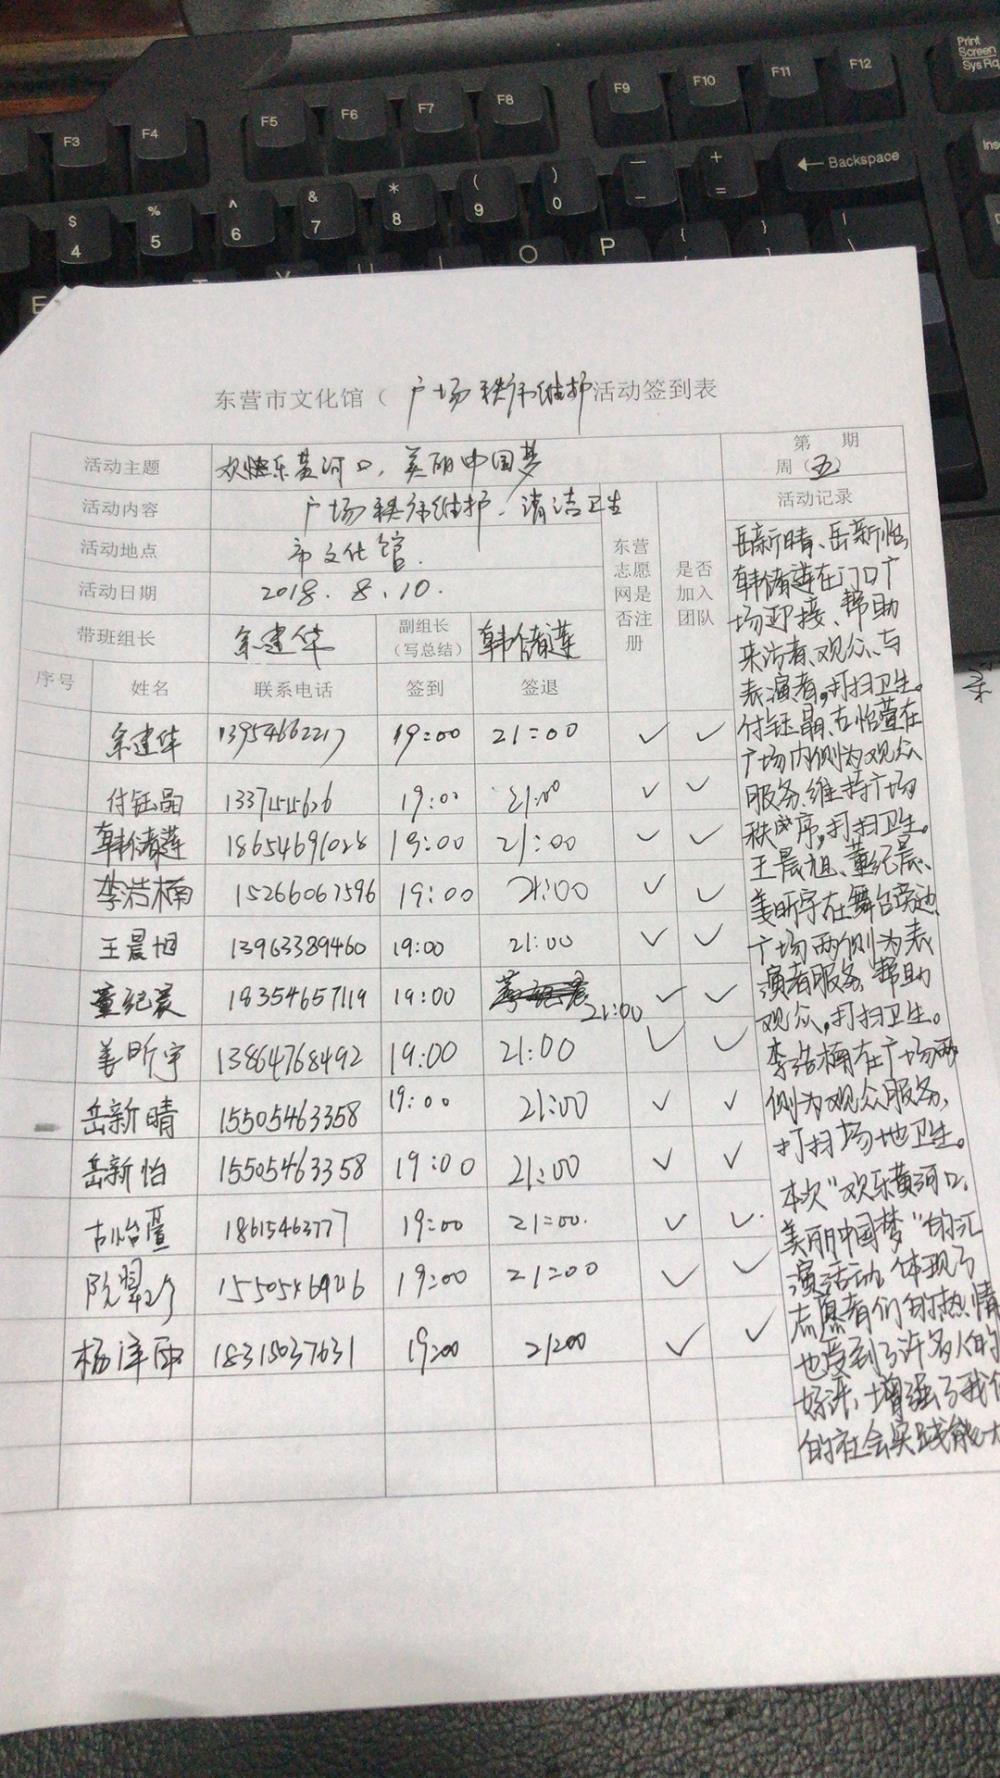 F3 F4 F5 F6 F7 F8 F9 F10 F11 F12 Print Screen SysRq
$ 4 % 5 ^ 6 & 7 * 8 ( 9 ) 0 — - + = ← Backspace Ins
E O P { } |
东营市文化馆（广场秩序维护活动签到表
活动主题 欢快乐黄河口，美丽中国梦 第 期 周（五）
活动内容 广场秩序维护、清洁卫生 活动记录
活动地点 市文化馆.
活动日期 2018.8.10.
东营志愿网是否注册 是否加入团队
带班组长 余建华 副组长（写总结） 韩储莲
序号 姓名 联系电话 签到 签退
余建华 13954662217 19:00 21:00 ✓ ✓
付钰晶 19:00 21:00 ✓ ✓
韩储莲 18654691028 19:00 21:00 ✓ ✓
李浩楠 15266067596 19:00 21:00 ✓ ✓
王晨旭 13963389460 19:00 21:00 ✓ ✓
董纪晨 18354657119 19:00 21:00 ✓ ✓
姜昕宇 13864768492 19:00 21:00 ✓ ✓
岳新晴 15505463358 19:00 21:00 ✓ ✓
岳新怡 15505463358 19:00 21:00 ✓ ✓
古怡萱 1861546377 19:00 21:00. ✓ ✓.
阮 19:00 21:00 ✓ ✓
杨泽雨 18315037631 19:00 21:00 ✓ ✓
岳新晴、岳新怡、
韩储莲在门口广
场迎接、帮助
来访者、观众、与
表演者，打扫卫生。
付钰晶、古怡萱在
广场内侧为观众
服务、维持广场
秩序，打扫卫生。
王晨旭、董纪晨、
姜昕宇在舞台旁边
广场两侧为表
演者服务，帮助
观众，打扫卫生。
李浩楠在广场两
侧为观众服务，
打扫场地卫生。
本次“欢乐黄河口，
美丽中国梦”的汇
演活动，体现了
志愿者们的热情
也受到了许多人的
好评、增强了我们
的社会实践能力